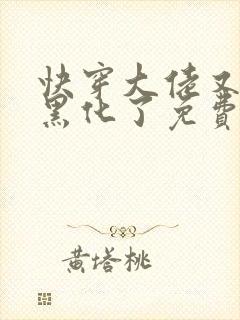 快穿大佬又
黑化了免費
黄塔桃